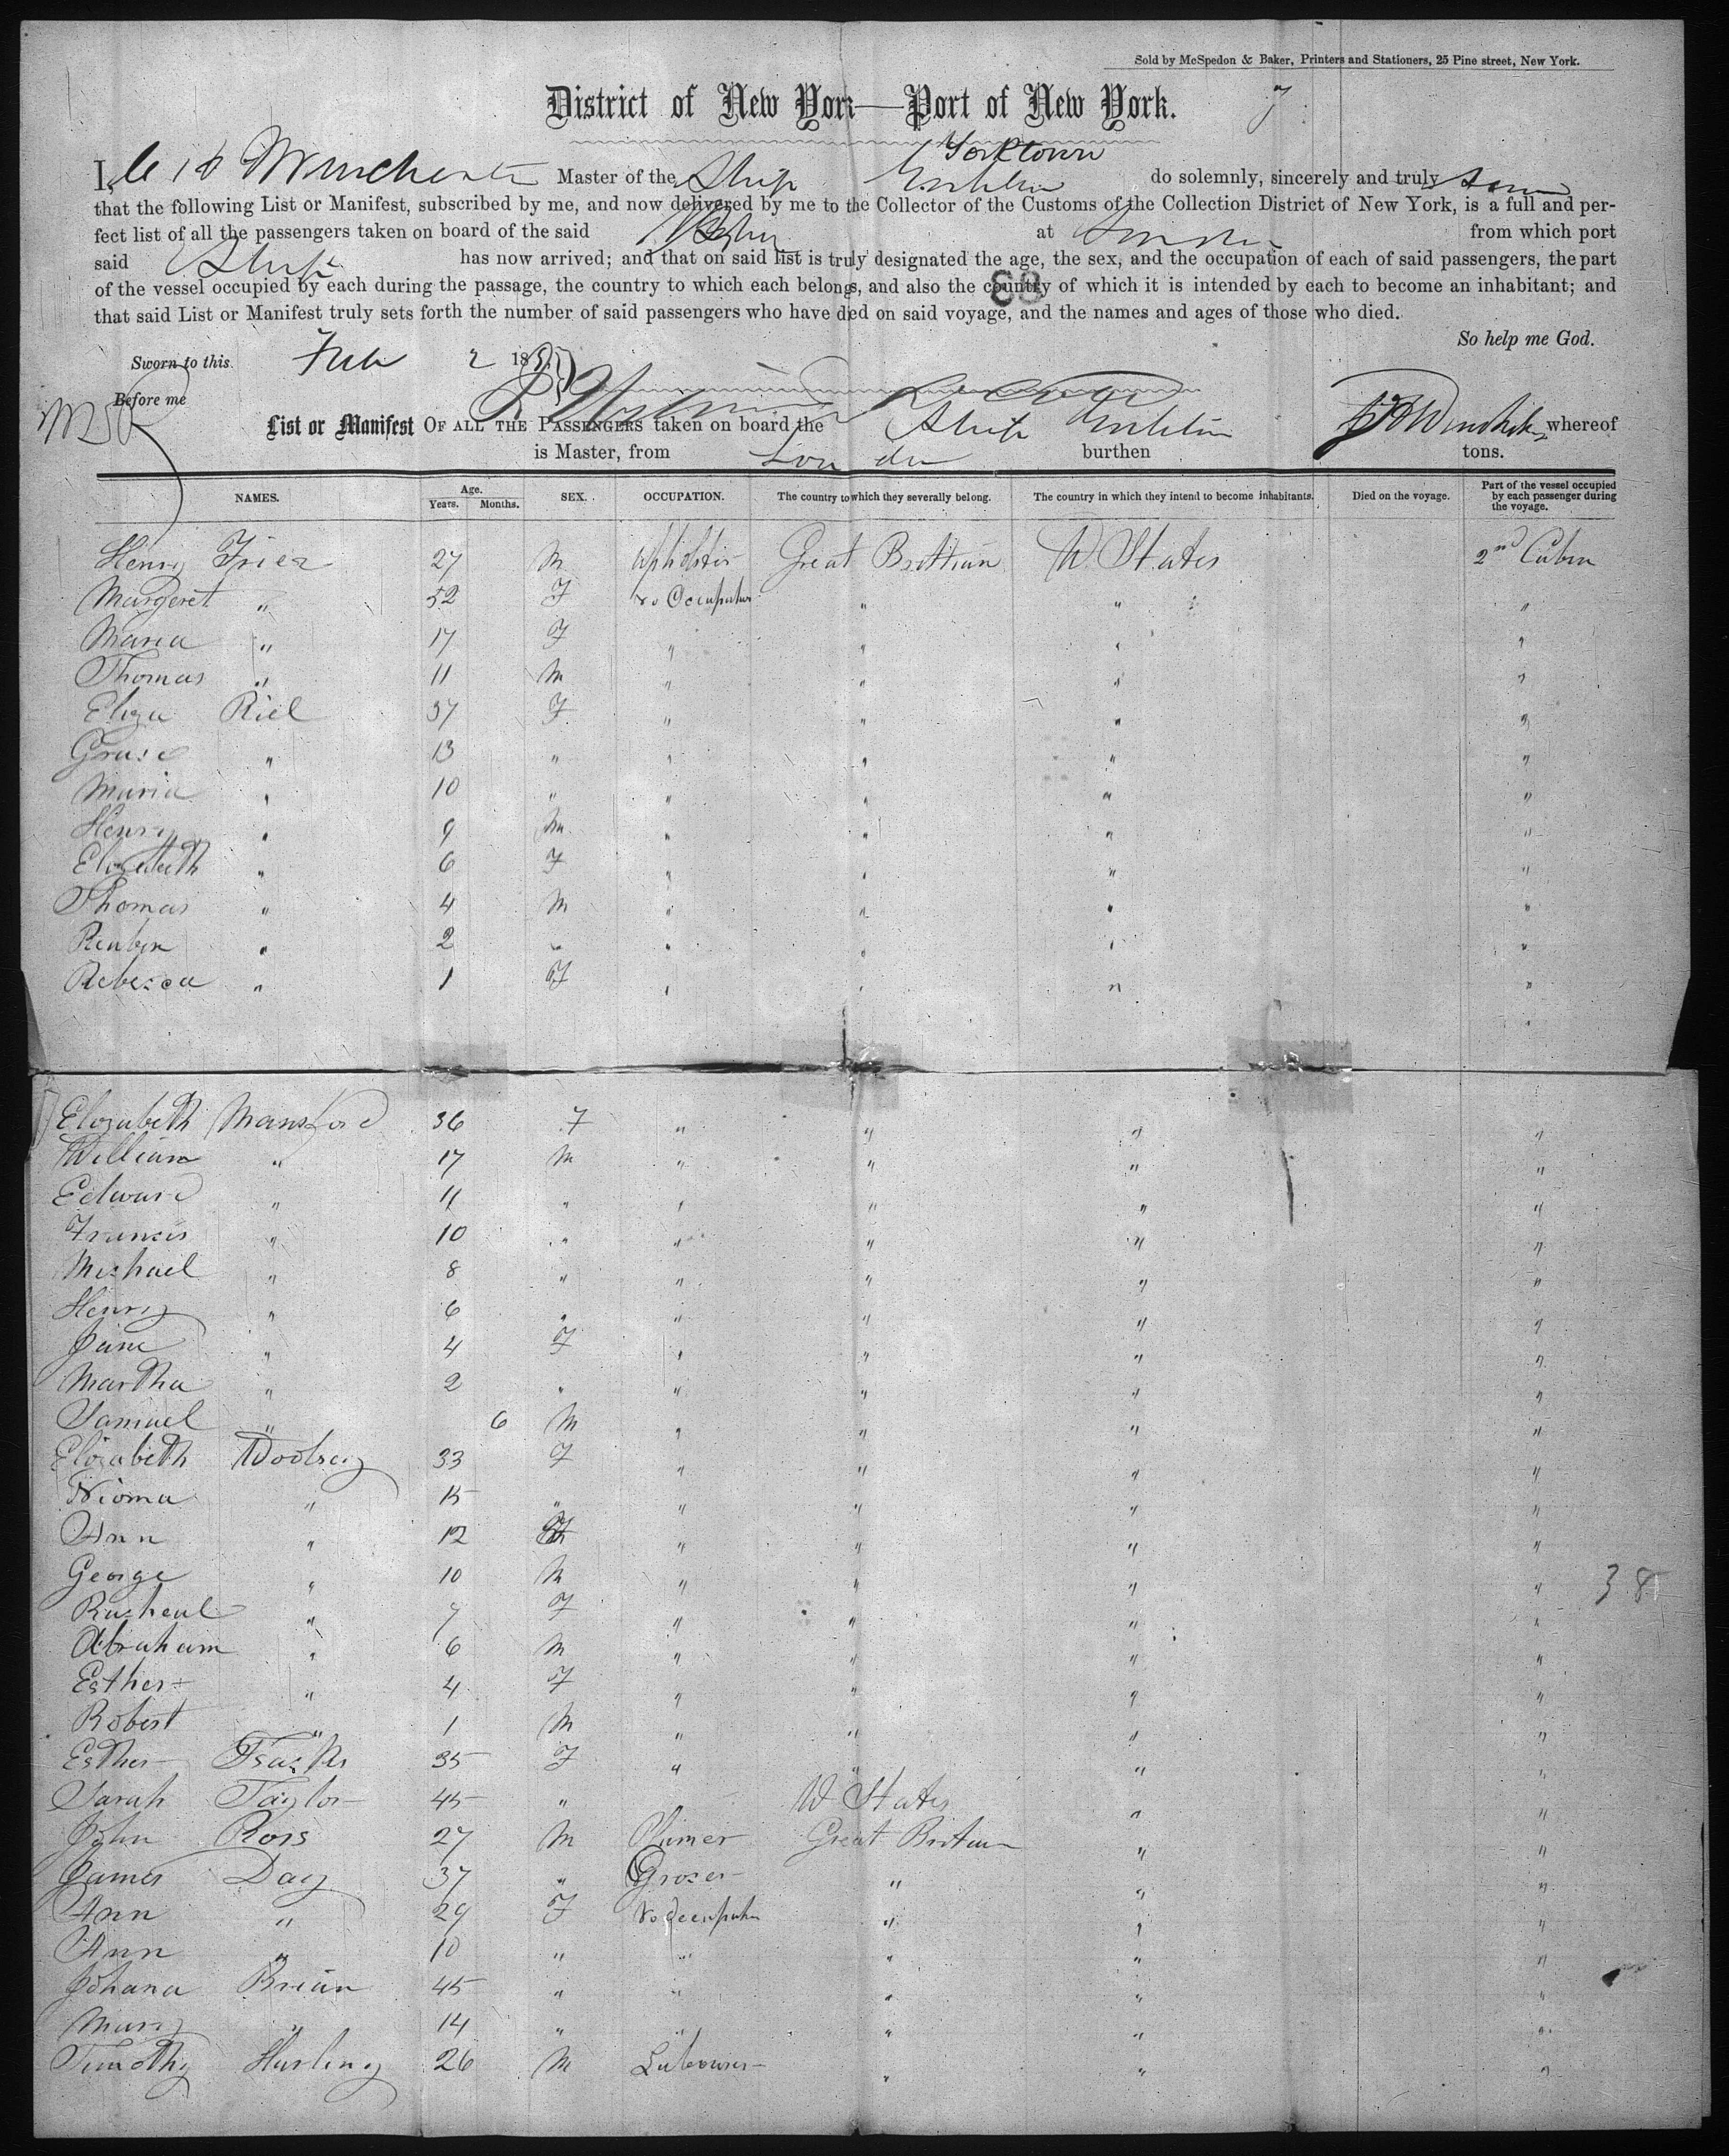 Sold by McSpedon & Baker, Printers and Stationers, 25 Pine street, New York.
District of New York—Port of New York. 7
Yorktown
I, Winchester Master of the Ship do solemnly, sincerely and truly
that the following List or Manifest, subscribed by me, and now delivered by me to the Collector of the Customs of the Collection District of New York, is a full and per-
fect list of all the passengers taken on board of the said at London from which port
said Ship has now arrived; and that on said list is truly designated the age, the sex, and the occupation of each of said passengers, the part
of the vessel occupied by each during the passage, the country to which each belongs, and also the country of which it is intended by each to become an inhabitant; and
that said List or Manifest truly sets forth the number of said passengers who have died on said voyage, and the names and ages of those who died.
So help me God.
Sworn to this 2 185
Before me
List or Manifest OF ALL THE PASSENGERS taken on board the Ship whereof
is Master, from London burthen tons.
NAMES. Age. Years. Months. SEX. OCCUPATION. The country to which they severally belong. The country in which they intend to become inhabitants. Died on the voyage. Part of the vessel occupied by each passenger during the voyage.
Henry Frier 27 M Upholster Great Brittian U States 2nd Cabin
Margeret " 52 F no Occupation " " "
Maria " 17 F " " " "
Thomas " 11 M " " " "
Eliza Riel 37 F " " " "
Grace " 13 " " " " "
Maria " 10 " " " " "
Henry " 9 M " " " "
Elizabeth " 6 F " " " "
Thomas " 4 M " " " "
Reuben " 2 " " " " "
Rebecca " 1 F " " " "
Elizabeth Mansford 36 F " " " "
William " 17 M " " " "
Edward " 11 " " " " "
Francis " 10 " " " " "
Michael " 8 " " " " "
Henry " 6 " " " " "
Jane " 4 F " " " "
Martha " 2 " " " " "
Samuel " 6 M " " " "
Elizabeth Woolsey 33 F " " " "
Nioma " 15 " " " " "
Ann " 12 F " " " "
George " 10 M " " " " 38
Racheal " 7 F " " " "
Abraham " 6 M " " " "
Esther " 4 F " " " "
Robert " 1 M " " " "
Esther 35 F " " " "
Sarah Taylor 45 " U States " "
John Ross 27 M Great Britain " "
James Day 37 " Grocer " " "
Ann " 29 F No Occupation " " "
Ann " 10 " " " " "
Johana Brian 45 " " " " "
Mary " 14 " " " " "
Timothy Hurling 26 M Labourer " " "